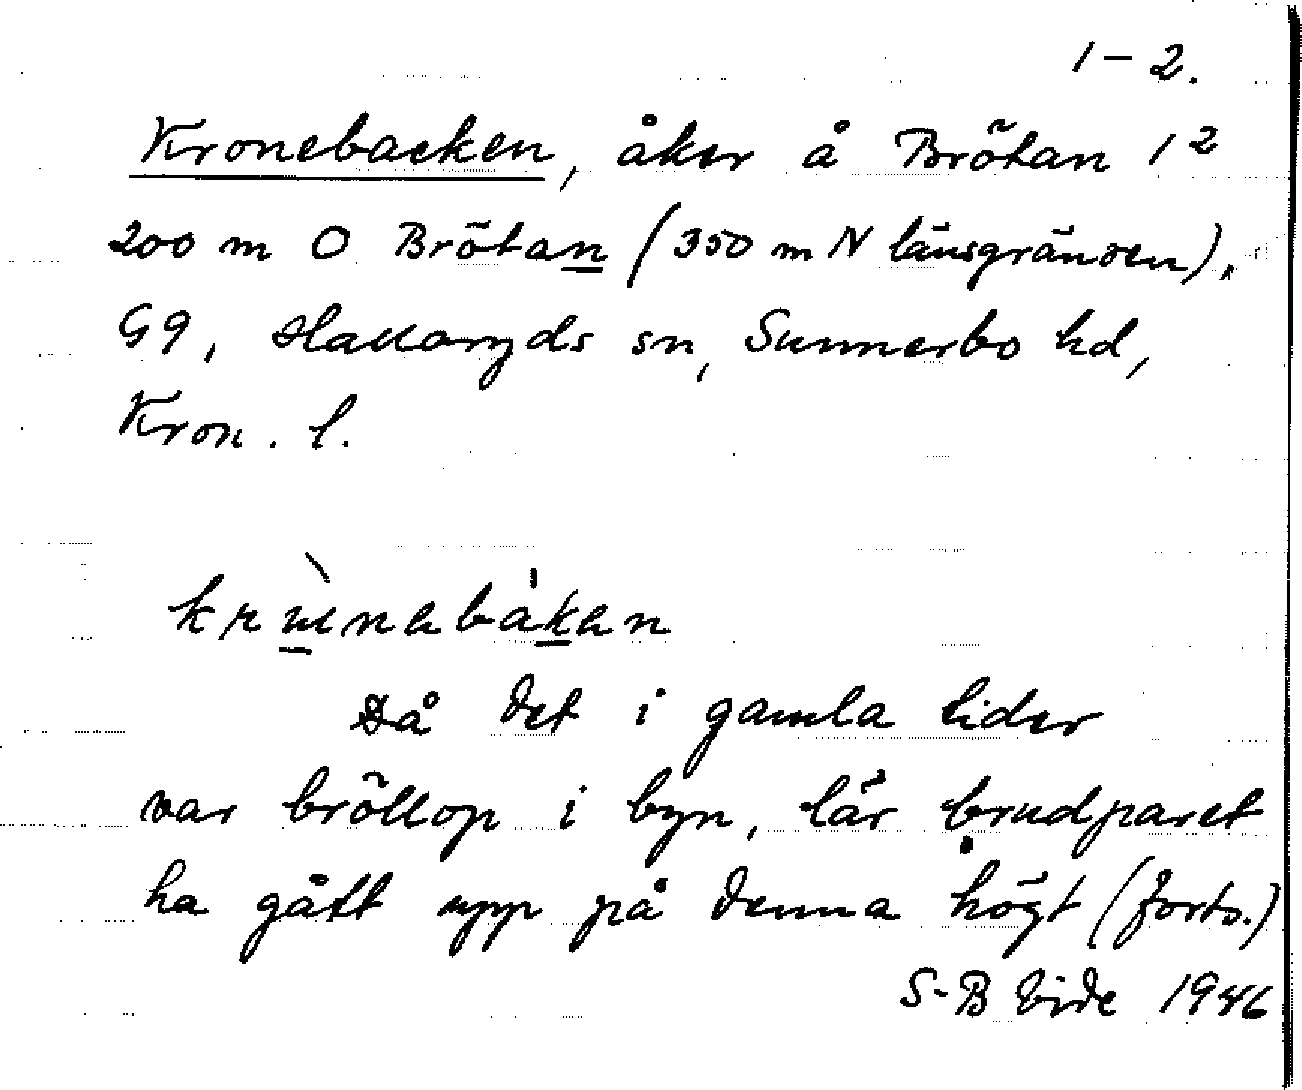 1-2.
Kronebacken, åker å Brötan 1²
200 m O Brötan (350 m N länsgränsen),
G9, Hallaryds sn, Sunnerbo hd,
Kron. l.
Då det i gamla tider
var bröllop i byn, lär brudparet
ha gått upp på denna högt (forts.)
S-B Vide 1946